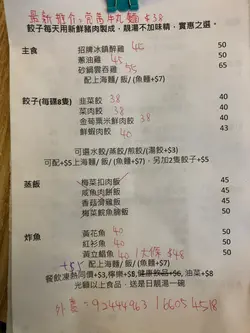 最新推介,京畐牛丸麵 $38
餃子每天用新鮮豬肉製成，靚湯不加味精，實惠之選。
主食 招牌冰鎮醉雞 45 50
蔥油雞 45 50
砂鍋雲吞雞 55 65
餃子(每碟8隻) 韭菜餃 38 40
菜肉餃 38 40
金菊粟米鮮肉餃 38 40
鮮蝦肉餃 40 43
可選水餃/蒸餃/煎餃/湯餃(+3)
可配+$5上海麵/ 飯/ (魚麵+$7)，另加2隻餃子+$5
蒸飯 梅菜扣肉飯 45
咸魚肉餅飯 45
香菇滑雞飯 45
梅菜鮫魚腩飯 50
炸魚 黃花魚 40 50
紅衫魚 40 50
黃立鯧魚 40 1大條 $48 50
+$5 配上海麵/ 飯/ (魚麵+$7)
餐飲凍熱同價+$3,檸樂+$8,健康飲品+$6, 油菜+$8
光顧以上食品，送是日靚湯一碗
外賣:92444963 / 66054518